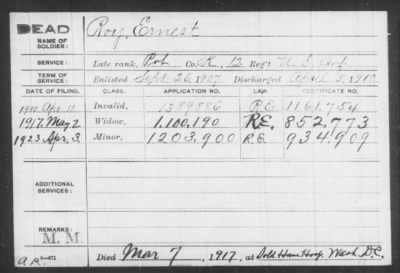 DEAD
NAME OF SOLDIER: Roy, Ernest
SERVICE: Late rank, Pvt Co. K, 12 Reg't U.S. Inf.
TERM OF SERVICE: Enlisted Sept. 26, 1907 Discharged April 5, 1910
DATE OF FILING. CLASS. APPLICATION NO. LAW. CERTIFICATE NO.
1910 Apr. 11 Invalid, 1389886 R.E. 1161.754
1917, May 2 Widow, 1.100.190 R.E. 852.773
1923 Apr. 3. Minor, 1203.900 R.E. 934.909
ADDITIONAL SERVICES:
REMARKS:
M. M.
Died Mar 7, 1917, at Sold Home Hosp, Wash D.C.